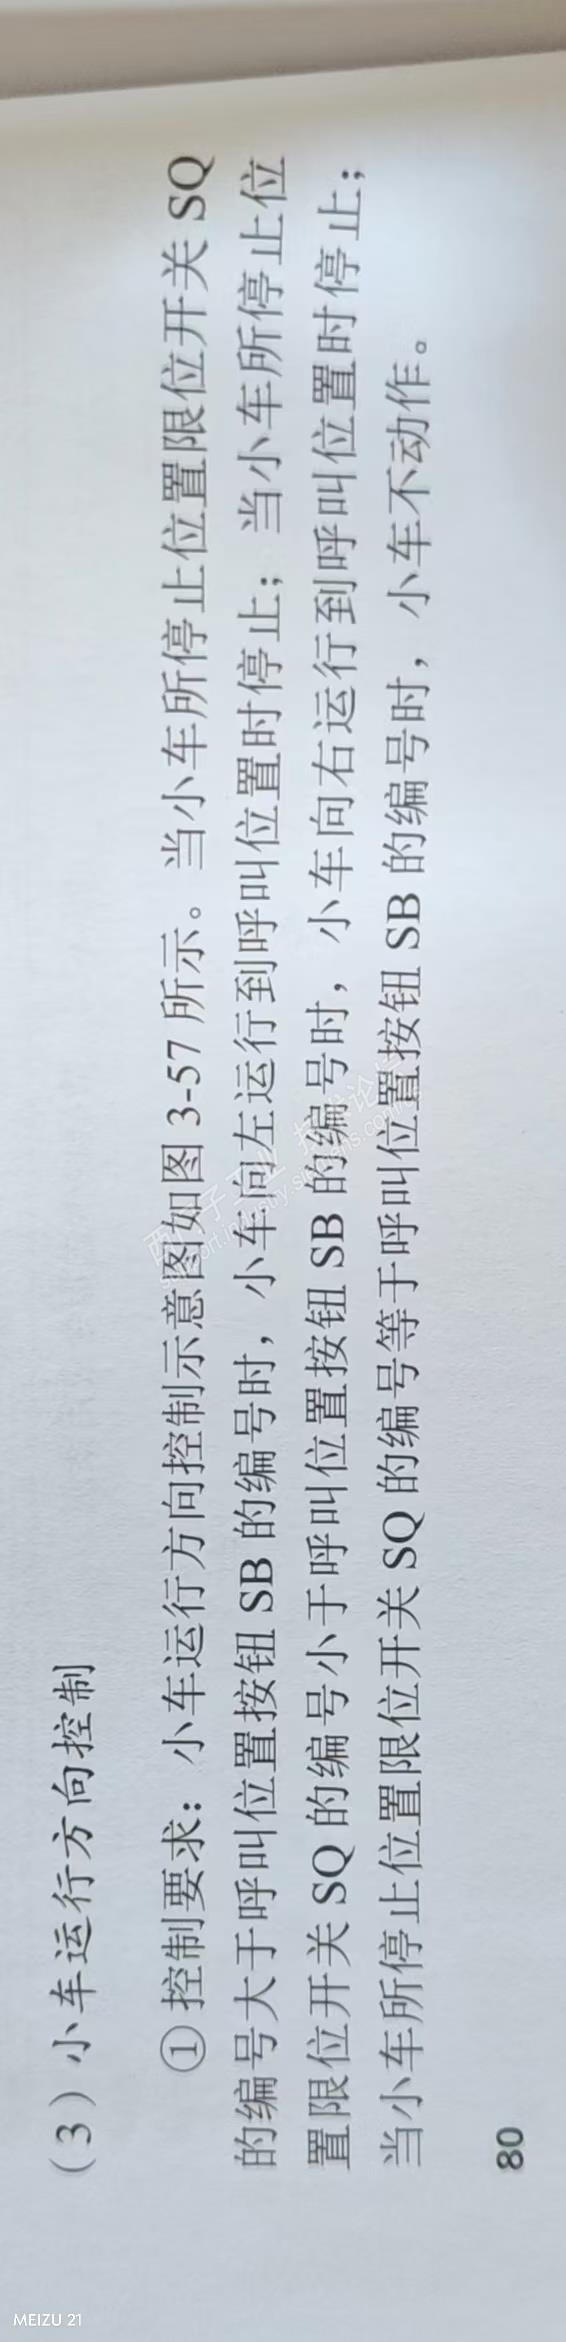 （3）小车运行方向控制
① 控制要求：小车运行方向控制示意图如图 3-57 所示。当小车所停止位置限位开关 SQ
的编号大于呼叫位置按钮 SB 的编号时，小车向左运行到呼叫位置时停止；当小车所停止位
置限位开关 SQ 的编号小于呼叫位置按钮 SB 的编号时，小车向右运行到呼叫位置时停止；
当小车所停止位置限位开关 SQ 的编号等于呼叫位置按钮 SB 的编号时，小车不动作。
80
MEIZU 21